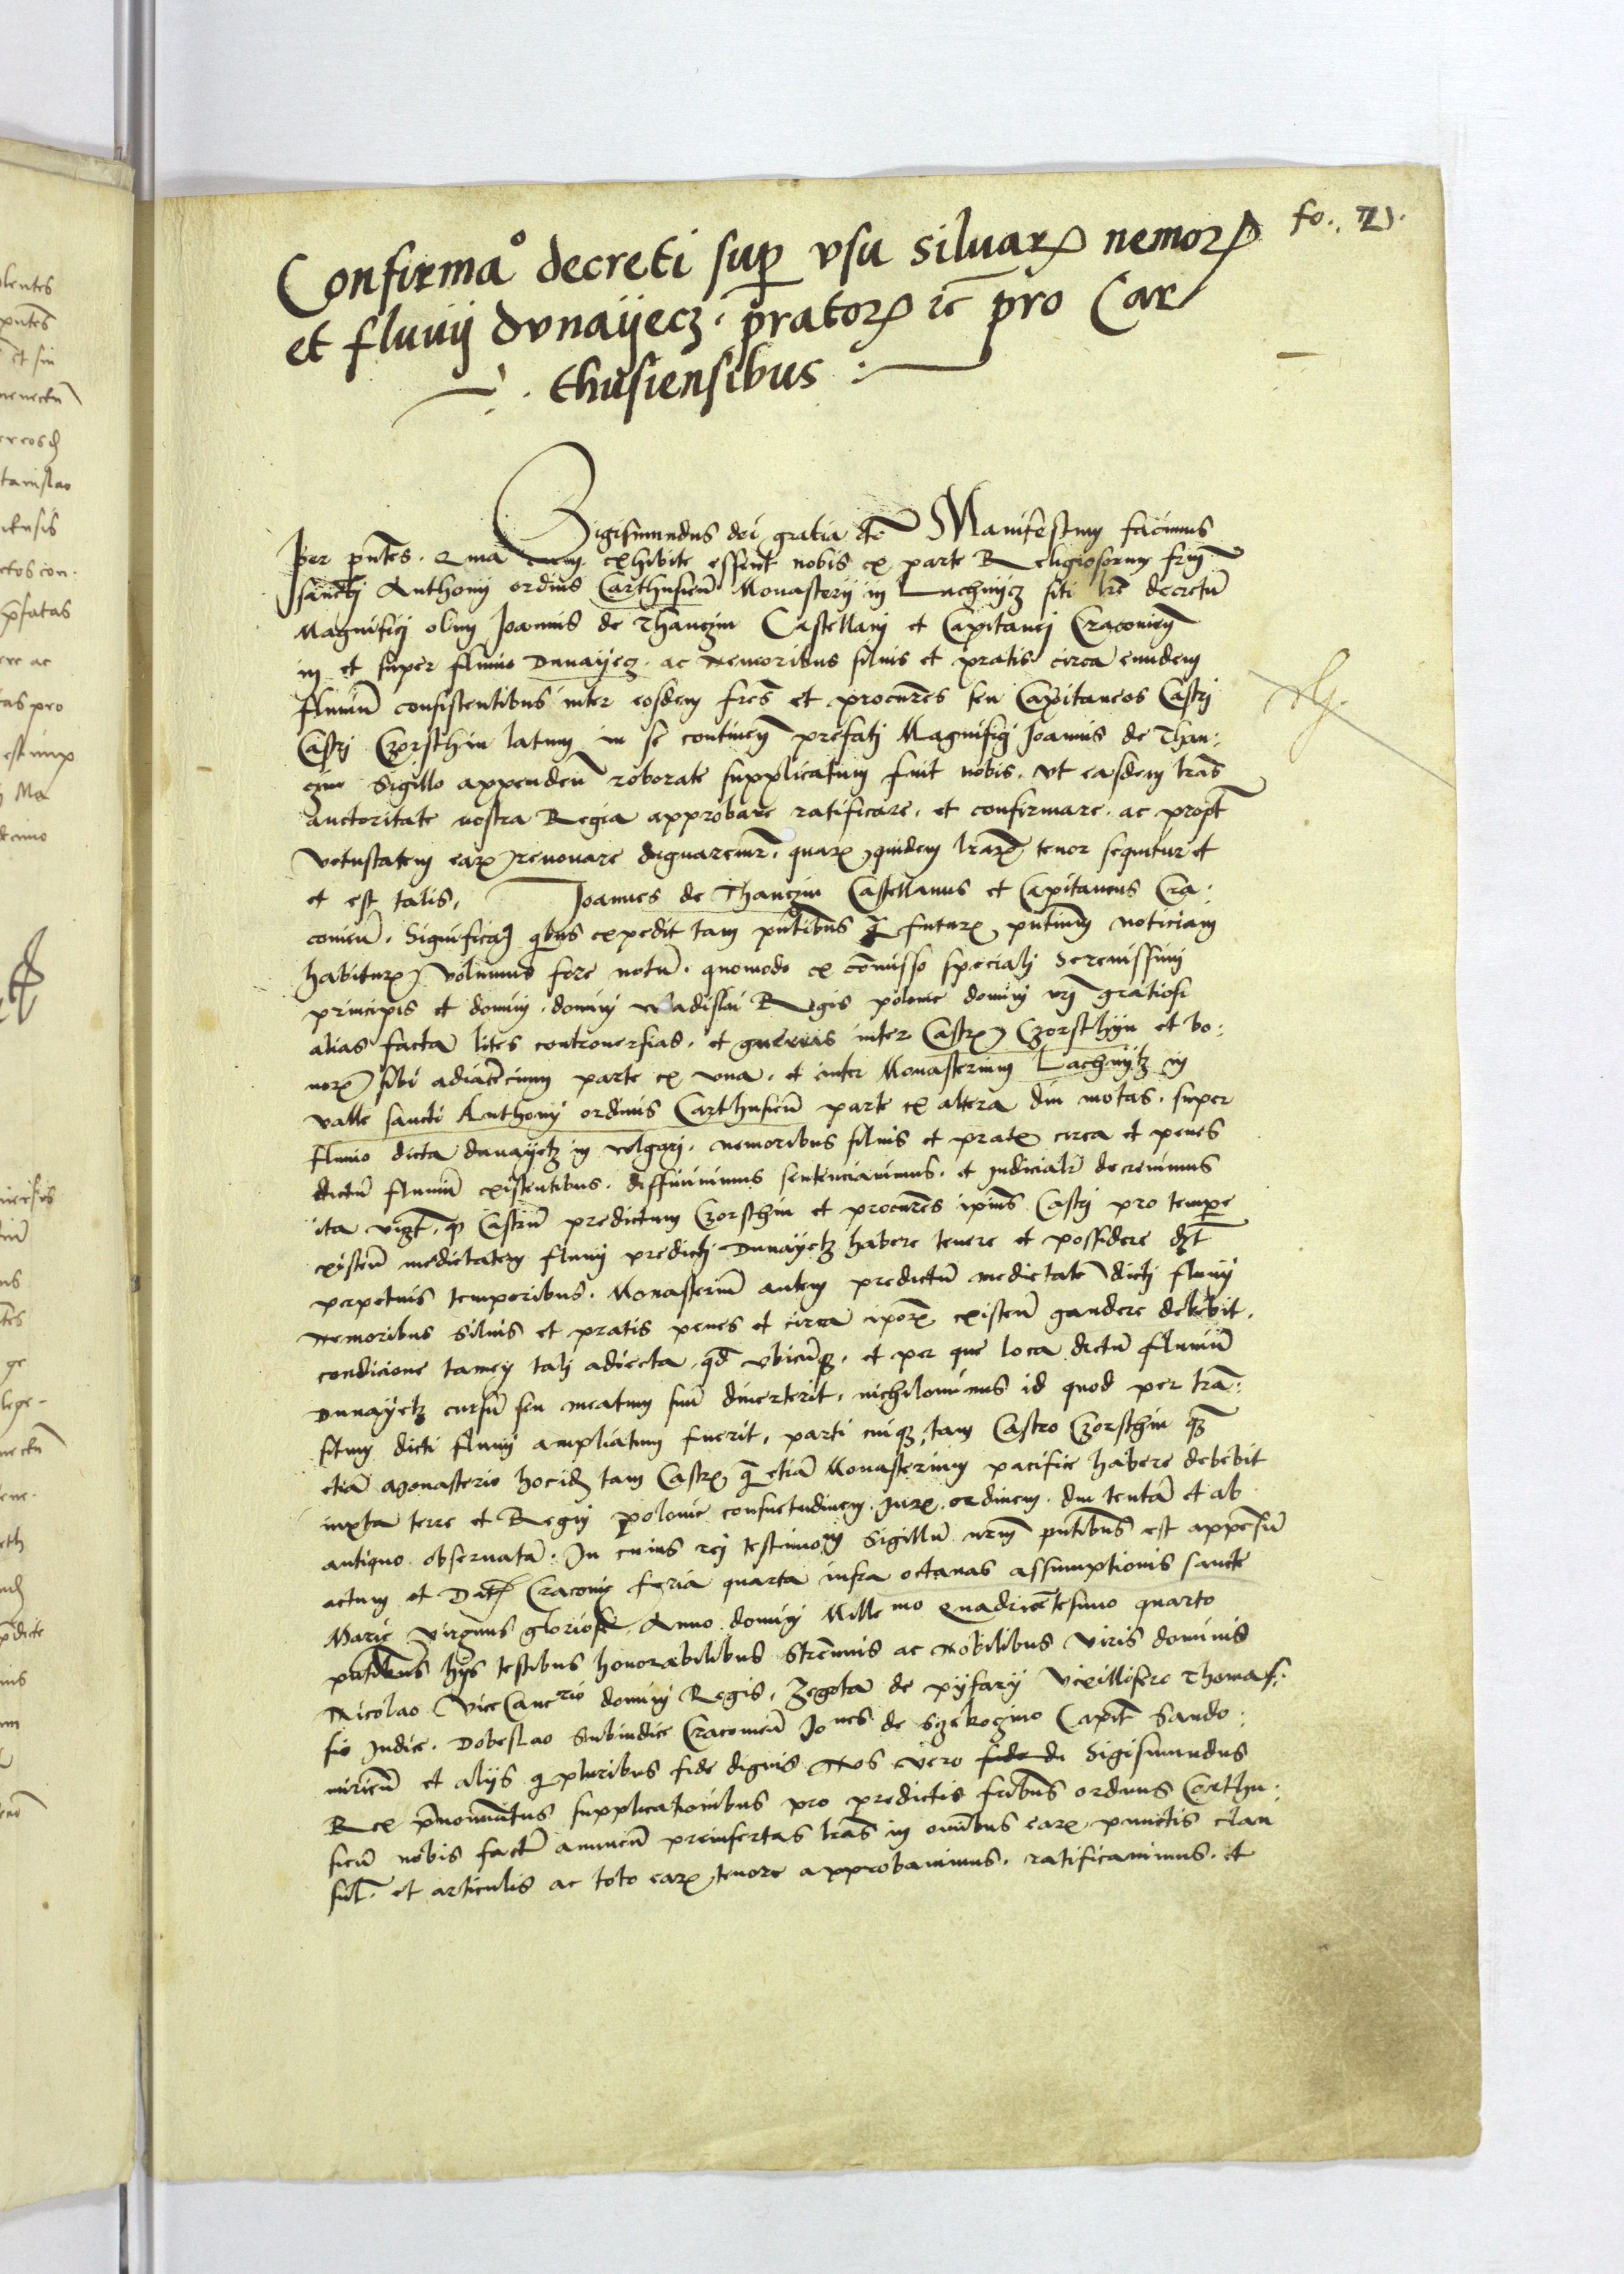 fo. 71.
Confirmaº decreti sup vsu siluarꝝ nemorꝝ
et fluuij dvnaÿecz. pratorꝝ ꝛc̄ pro Car
thusiensibus
Sigismundus dei gratia etc̄ Manifestum facimus
per pn̄tes. Qma cum exhibite essent nobis ex parte Religiosorum frm̄
sancti Anthonij ordinis Carthusien̄ Monasterij in Lachnycz siti lr̄e decretū
Magnifici olim Joannis de Thanczin Castellani et Capitanej Cracouien̄
in et super fluuio Dunayecz. ac Nemoribus siluis et pratis circa eundem
fluuiū consistentibus inter eosdem fres̄ et procures̄ seu Capitaneos Castrj
Castrj Czorsthin latum in se continen̄ prefatj Magnifici Joannis de Than:
czin Sigillo appenden̄ roborate supplicatum fuit nobis. vt easdem lrās
auctoritate nostra Regia approbare ratificare. et confirmare. ac propt̄
vetustatem earꝝ renouare dignaremr̄. quarꝝ quidem lrārꝝ tenor sequitur et
et est talis. Joannes de Thanczin Castellanus et Capitaneus Cra:
couien̄. Significam̄ qbus expedit tam pn̄tibus q̄ futurꝝ pn̄tium noticiam
habiturꝝ volumus fore notū. quomodo ex cōmisso specialj Serenissimj
principis et dominj. dominj wladislai Regis polonie dominj nr̄j gratiosi
alias facta lites controuersias. et guerras inter Castrꝝ Czorsthyn et bo:
norꝝ sibi adiacēcium parte ex vna. et inter Monasterium Lachnytz in
valle sancti Anthonij ordinis Carthusien̄ parte ex altera diu motas. super
fluuio dicta dunayetz in vlgarj. nemoribus siluis et pratꝝ circa et penes
dictū fluuiū existentibus. diffiniuimus sentenciauimus. et Judicialr̄ decreuimus
ita vizt̄. q Castrū predictum Czorsthin et procures̄ ipius̄ Castrj pro tempe
existen̄ medietatem fluuij predicti Dunayetz habere tenere et possidere dz̄t
perpetuis temporibus. Monasteriū autem predictū medietatē dicti fluuij
Nemoribus siluis et pratis penes et circa ipsorꝝ existen̄ gaudere debebit.
condicione tamen talj adiecta. qd̄ vbicūqꝫ. et per que loca dictū fluuiū
Dunayetz cursū seu meatum suū diuerterit. nichilominus id quod per trā:
situm dicti fluuij ampliatum fuerit. parti cuiqꝫ tam Castro Czorsthin qꝫ̄
etiā Monasterio hocid̄ tam Castrꝝ q̄ etiā Monasterium pacifice habere debebit
iuxta terre et Regnj polonie consuetudinem. Jurꝝ. ordinem. diu tentā et ab
antiquo obseruatā. In cuius rej testimonium Sigillū nrm̄ pn̄tibus est appensū
actum et Datꝫ Cracouie feria quarta infra octauas assumptionis sancte
Marie virginis gloriose. Anno dominj Millemo Quadricētesimo quarto
pn̄tibus hys testibus honorabilibus strennuis ac Nobilibus viris dominis
Nicolao Vicecancrio dominj Regis. Zegota de pysary Vexillifero Thomas.
sio Judice. Dobeslao Subiudice Cracouien̄ Jones de Szekoczino Capit̄ Sando:
mirien̄ et alijs q pluribus fide dignis Nos vero fide di Sigismundus
Rex p̄nominatus supplicationibus pro predictis frībus ordinis Carthu:
sien̄ nobis fact̄ annuen̄ preinsertas lrās in omībus earꝝ punctis clau
sul̄. et articulis ac toto earꝝ tenore approbauimus. ratificauimus. et